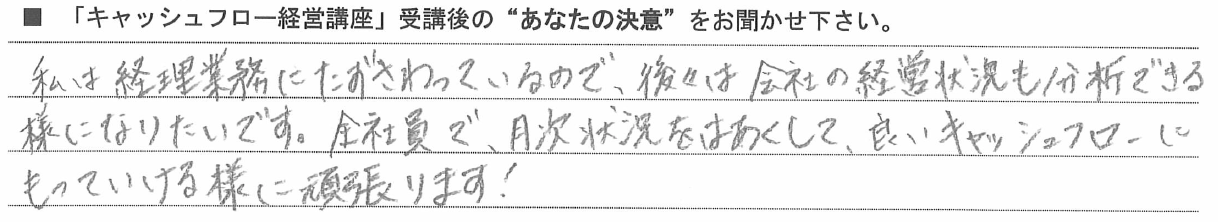 ■ 「キャッシュフロー経営講座」受講後の“あなたの決意”をお聞かせ下さい。
私は経理業務にたずさわっているので、後々は会社の経営状況も分析できる
様になりたいです。全社員で、月次状況をはあくして、良いキャッシュフローに
もっていける様に頑張ります!